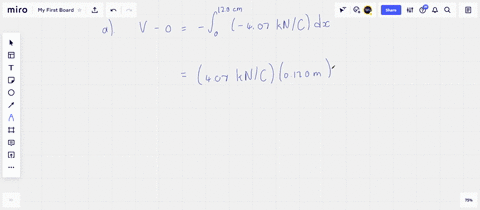 miro
My First Board
Share
a) V - 0 = - ∫₀^12.0 cm (-4.07 kN/C) dx
= (4.07 kN/C)(0.120 m)
75%